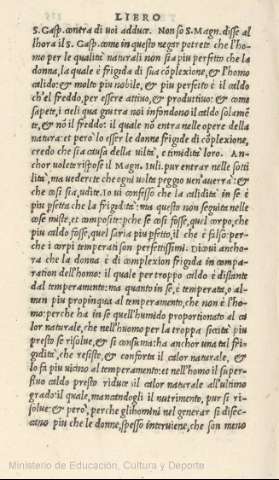 LIBRO
S. Gasp. contra di voi adduce. Non so S. Magn. disse al
lhora il S. Gasp. come in questo negar potrete che l'ho-
mo per le qualità naturali non sia piu perfetto che la
donna, la quale è frigida di sua cõplexione, & l'homo
calido: & molto piu nobile, & piu perfetto è il caldo
ch'el freddo, per essere attiuo, & produttiuo: & come
sapete, i cieli qua giu tra noi infondono il caldo solamẽ
te, & nõ il freddo: il quale nõ entra nelle opere della
natura: et però lo esser le donne frigide di cõplexione,
credo che sia causa della viltà, e timidità loro. An-
chor volete rispose il Magn. Iuli. pur entrar nelle sotti
lità, ma vederete che ogni volta peggio ven'auerrà: &
che cosi sia, udite. Io ui confesso che la calidità in se è
piu pfetta che la frigidità: ma questo non seguite nelle
cose miste, et composite: pche se cosi fosse, quel corpo, che
piu caldo fosse, quel saria piu pfetto, il che è falso: per-
che i corpi temperati son perfettissimi. Dicoui ancho-
ra che la donna è di complexion frigida in compara-
tion dell'homo: il quale per troppo caldo è distante
dal temperamento: ma quanto in se, è temperata, o al-
men piu propinqua al temperamento, che non è l'ho-
mo: perche ha in se quell'humido proportionato al ca
lor naturale, che nell'homo per la troppa siccità piu
presto se risolue, & si consuma: ha anchor una tal fri-
gidità, che resiste, & conforta il calor naturale, &
lo fa piu uicino al temperamento: et nell'homo il super-
fluo caldo presto riduce il calor naturale all'ultimo
grado: il quale, mancandogli il nutrimento, pur si ri-
solue: & però, perche gli homini nel generar si disec-
cano piu che le donne, spesso interuiene, che son meno
Ministerio de Educación, Cultura y Deporte